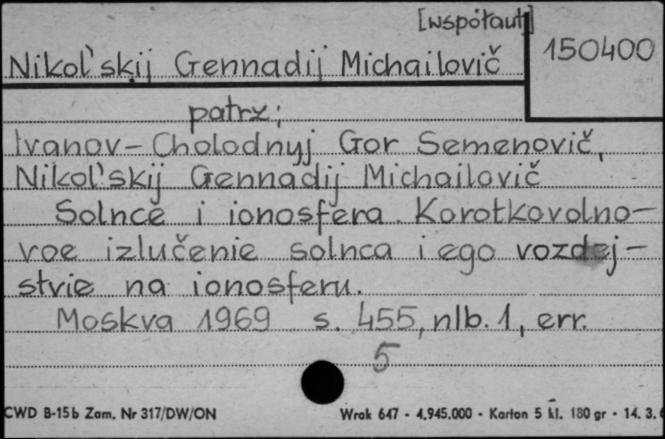 [współaut]
Nikol'skij Gennadij Michailovič
150400
patrz:
Ivanov-Cholodnyj Gor Semenovič,
Nikol'skij Gennadij Michailovič
Solnce i ionosfera. Korotkovolno-
voe izlučenie solnca i ego vozdej-
stvie na ionosferu.
Moskva 1969 s. 455, nlb. 1, err.
5
CWD B-15b Zam. Nr 317/DW/ON Wrak 647 - 4.945.000 - Karton 5 kl. 180 gr - 14. 3.